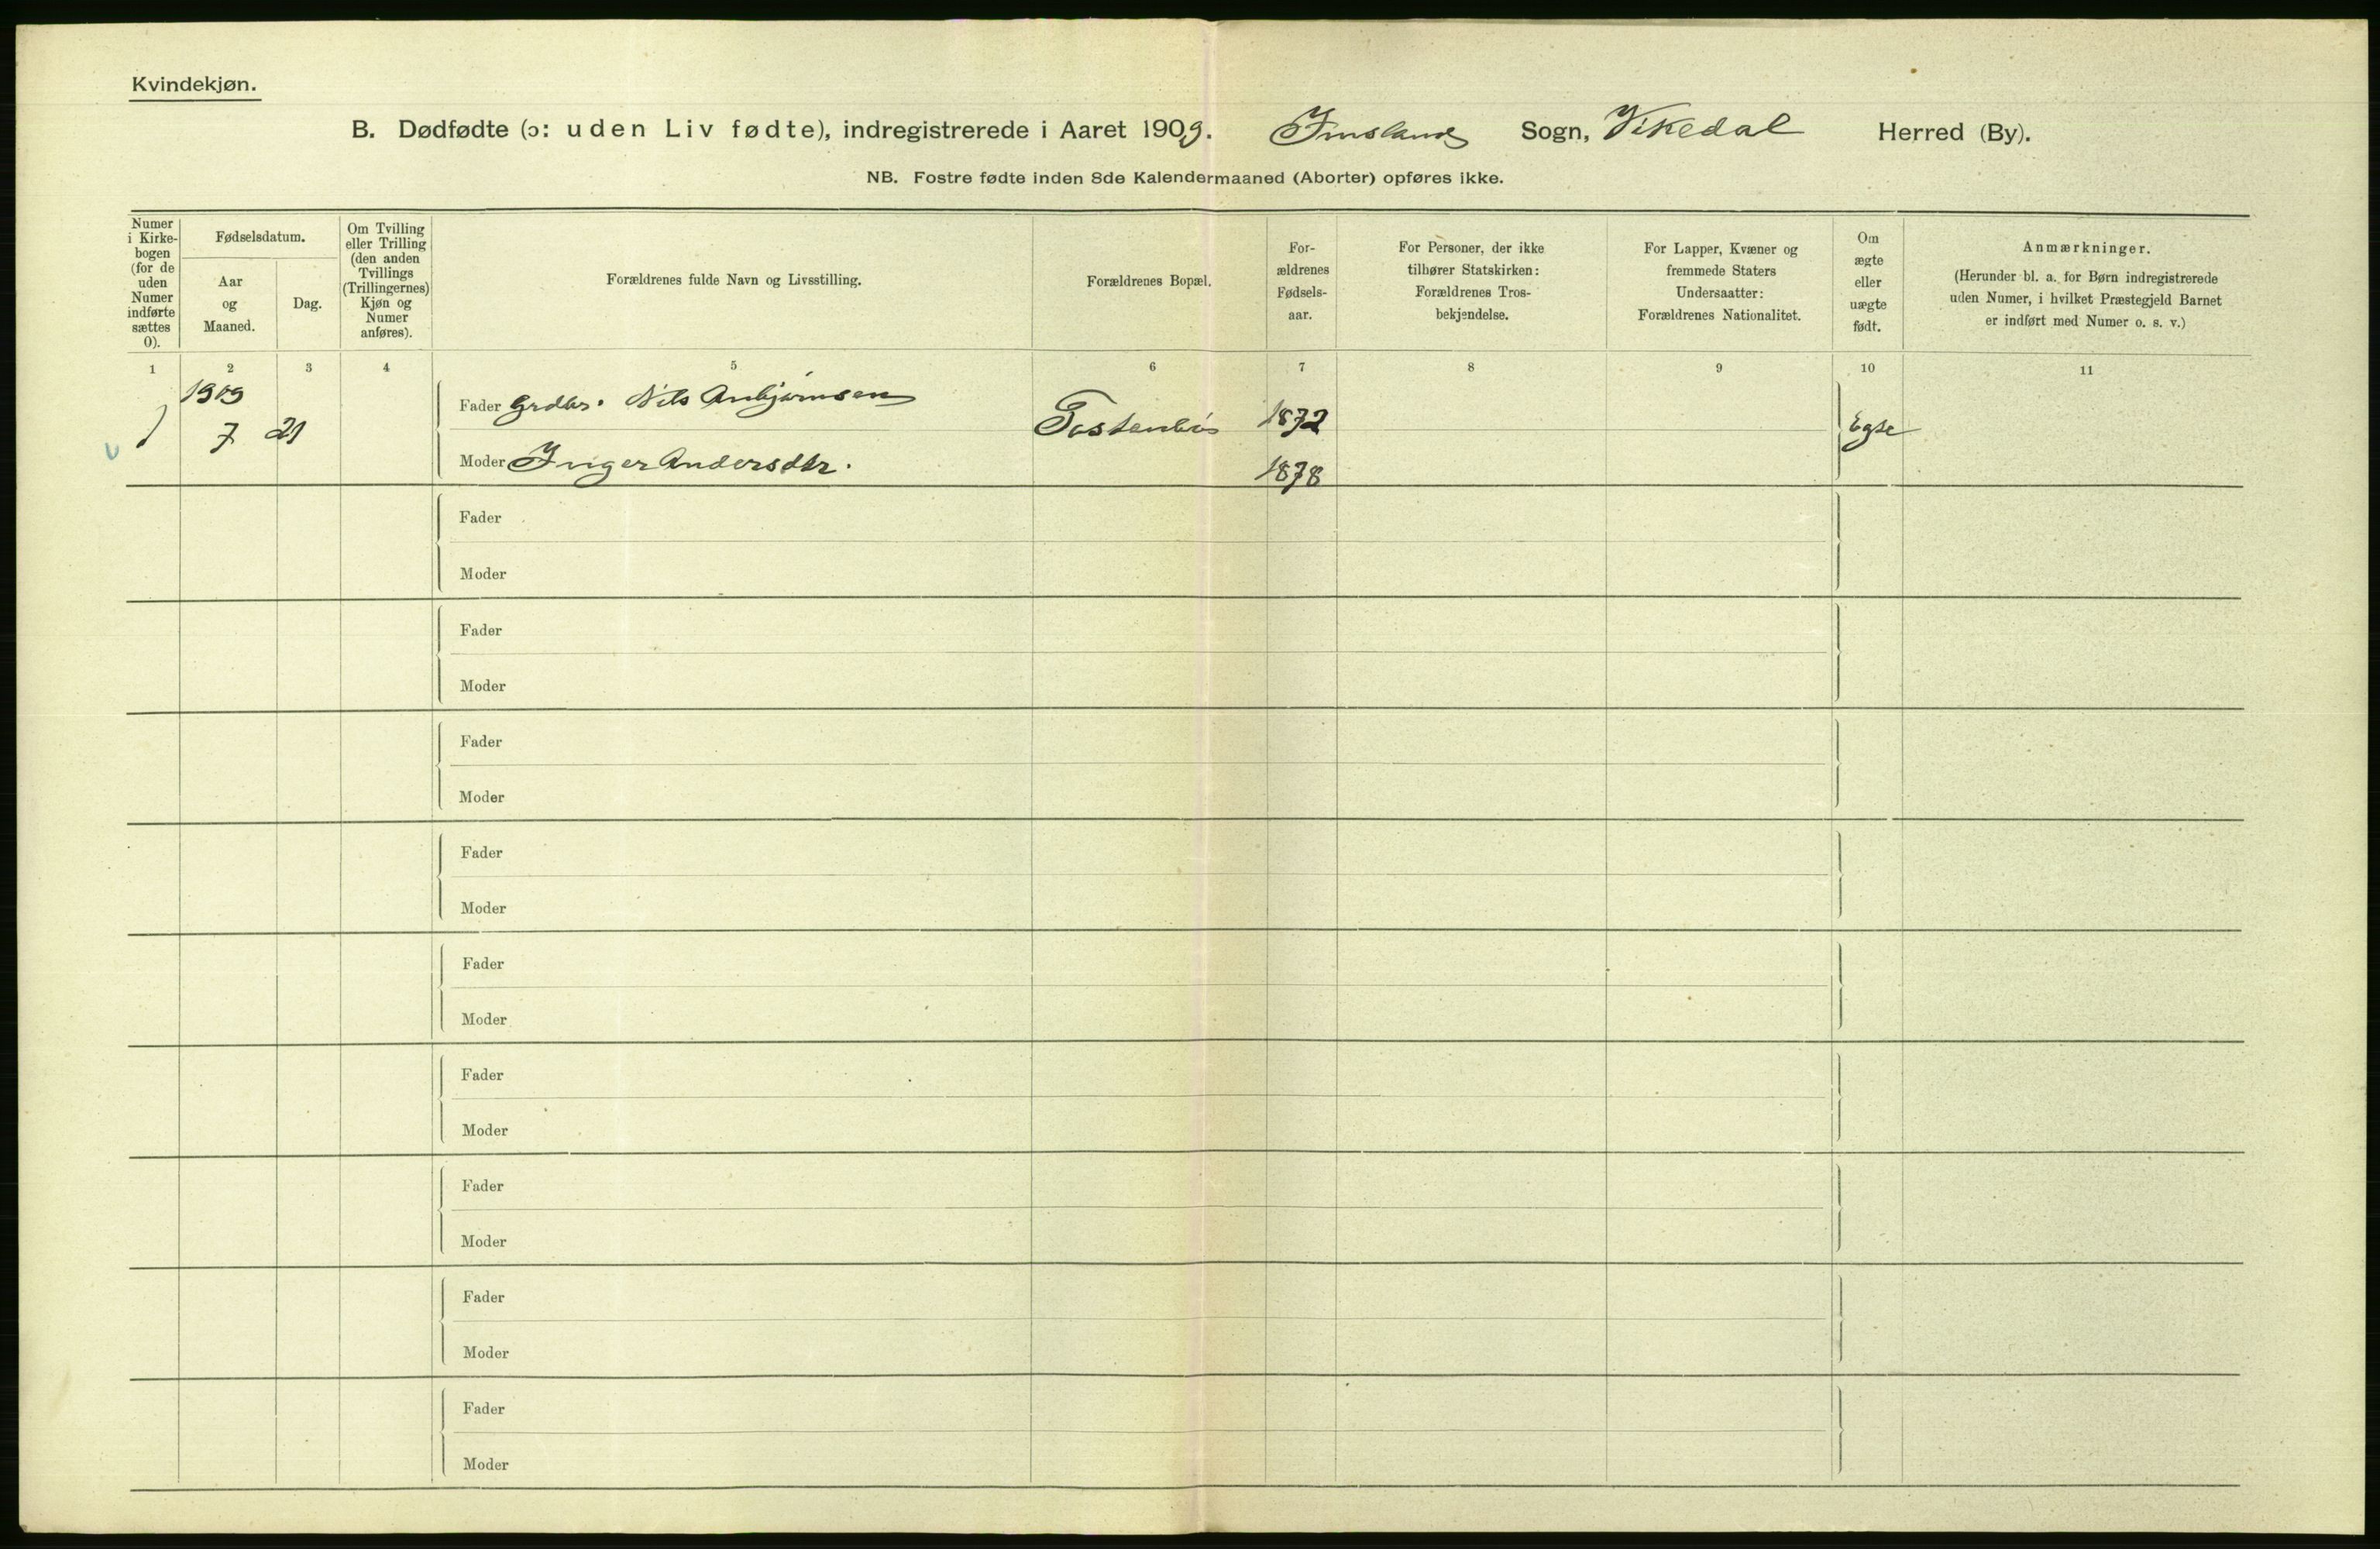 Kvindekjøn.
B. Dødfødte (ɔ: uden Liv fødte), indregistrerede i Aaret 1909. Imsland Sogn, Vikedal Herred (By).
NB. Fostre fødte inden 8de Kalendermaaned (Aborter) opføres ikke.
Numer
i Kirke-
bogen
(for de
uden
Numer
indførte
sættes
0).
Fødselsdatum.
Aar
og
Maaned.
Dag.
Om Tvilling
eller Trilling
(den anden
Tvillings
(Trillingernes)
Kjøn og
Numer
anføres).
Forældrenes fulde Navn og Livsstilling.
Forældrenes Bopæl.
For-
ældrenes
Fødsels-
aar.
For Personer, der ikke
tilhører Statskirken:
Forældrenes Tros-
bekjendelse.
For Lapper, Kvæner og
fremmede Staters
Undersaatter:
Forældrenes Nationalitet.
Om
ægte
eller
uægte
født.
Anmærkninger.
(Herunder bl. a. for Børn indregistrerede
uden Numer, i hvilket Præstegjeld Barnet
er indført med Numer o. s. v.)
1 2 3 4 5 6 7 8 9 10 11
1909
Fader Grdbr. Nils Anbjørnsen
1 7 21 1872 Egte
Moder Inger Andersdtr. 1878
Fader
Moder
Fader
Moder
Fader
Moder
Fader
Moder
Fader
Moder
Fader
Moder
Fader
Moder
Fader
Moder
Fader
Moder